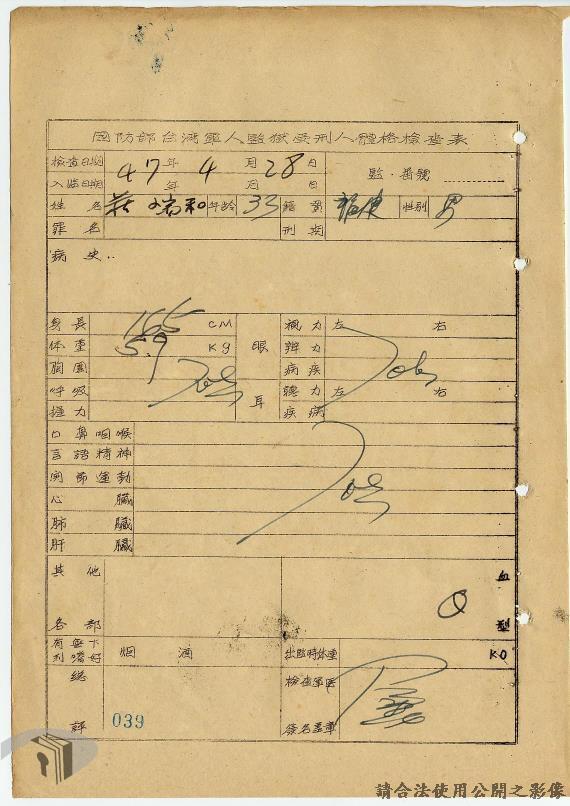 國防部台灣軍人監獄受刑人體格檢查表
檢查日期 47年4月28日 監·番號
入監日期 年 月 日
姓名 莊瑞和 年龄 33 籍貫 福建 性別 男
罪名 刑期
病史..
身長 165 CM 眼 視力 左 右
体重 59 Kg 辨力
胸圍 病疾
呼吸 耳 聽力 左 右
握力 疾病
口鼻咽喉
言語精神
関節運動
心臟
肺臟
肝臟
其他各部 血型 O
有無下列嗜好 烟 酒 出監時体重 KG
總評 039 檢查軍医簽名蓋章
請合法使用公開之影像